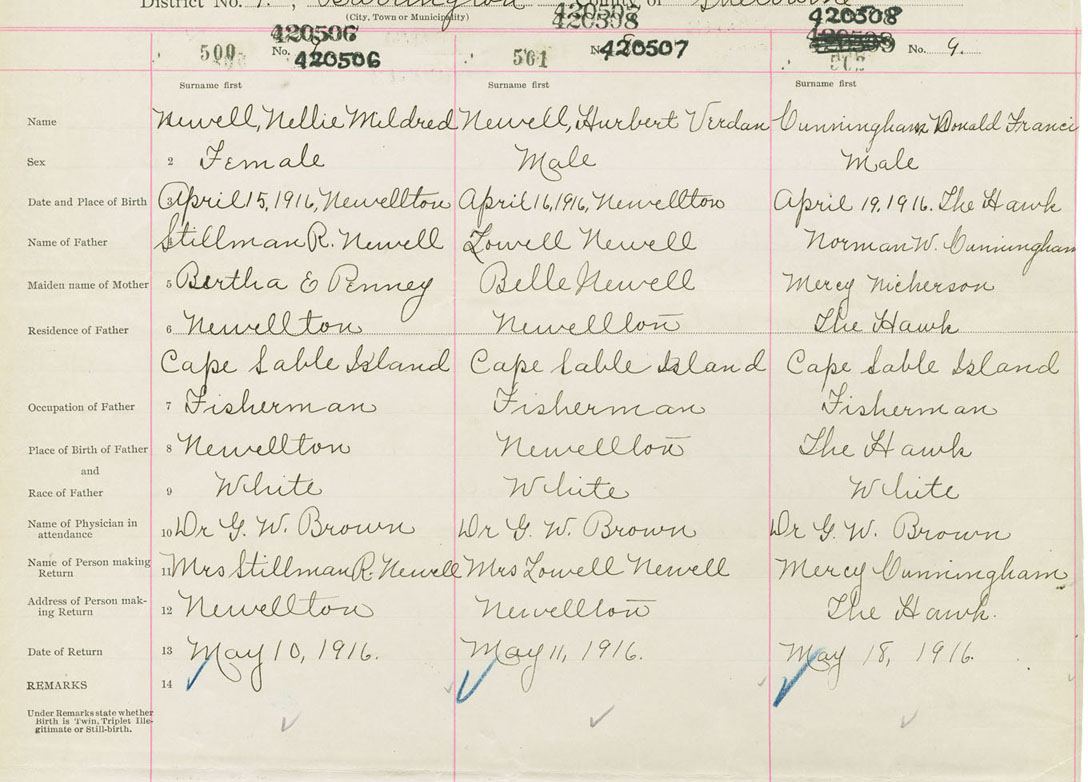 District No. 7. , Barrington County of Shelburne
(City, Town or Municipality)
420506 420508
500 No. 420506 501 No. 420507 No. 9.
Surname first Surname first Surname first
Name Newell, Nellie Mildred Newell, Hurbert Verdan Cunningham Donald Franci
Sex 2 Female Male Male
Date and Place of Birth 3 April 15, 1916, Newellton April 16, 1916, Newellton April 19, 1916. The Hawk
Name of Father Stillman R. Newell Lowell Newell Norman W. Cunningham
Maiden name of Mother 5 Bertha E Penney Belle Newell Mercy Nickerson
Residence of Father 6 Newellton Newellton The Hawk
Cape Sable Island Cape Sable Island Cape Sable Island
Occupation of Father 7 Fisherman Fisherman Fisherman
Place of Birth of Father 8 Newellton Newellton The Hawk
and
Race of Father 9 White White White
Name of Physician in
attendance 10 Dr G. W. Brown Dr G. W. Brown Dr G. W. Brown
Name of Person making
Return 11 Mrs Stillman R. Newell Mrs Lowell Newell Mercy Cunningham
Address of Person mak-
ing Return 12 Newellton Newellton The Hawk.
Date of Return 13 May 10, 1916. May 11, 1916. May 18, 1916.
REMARKS 14
Under Remarks state whether
Birth is Twin, Triplet Ille-
gitimate or Still-birth.